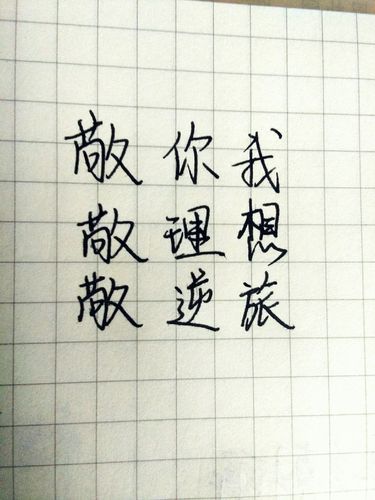 敬你我
敬理想
敬逆旅